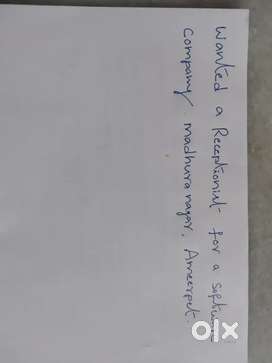 Wanted a Receptionist for a software
Company. madhura nagar. Ameerpet.
OLX